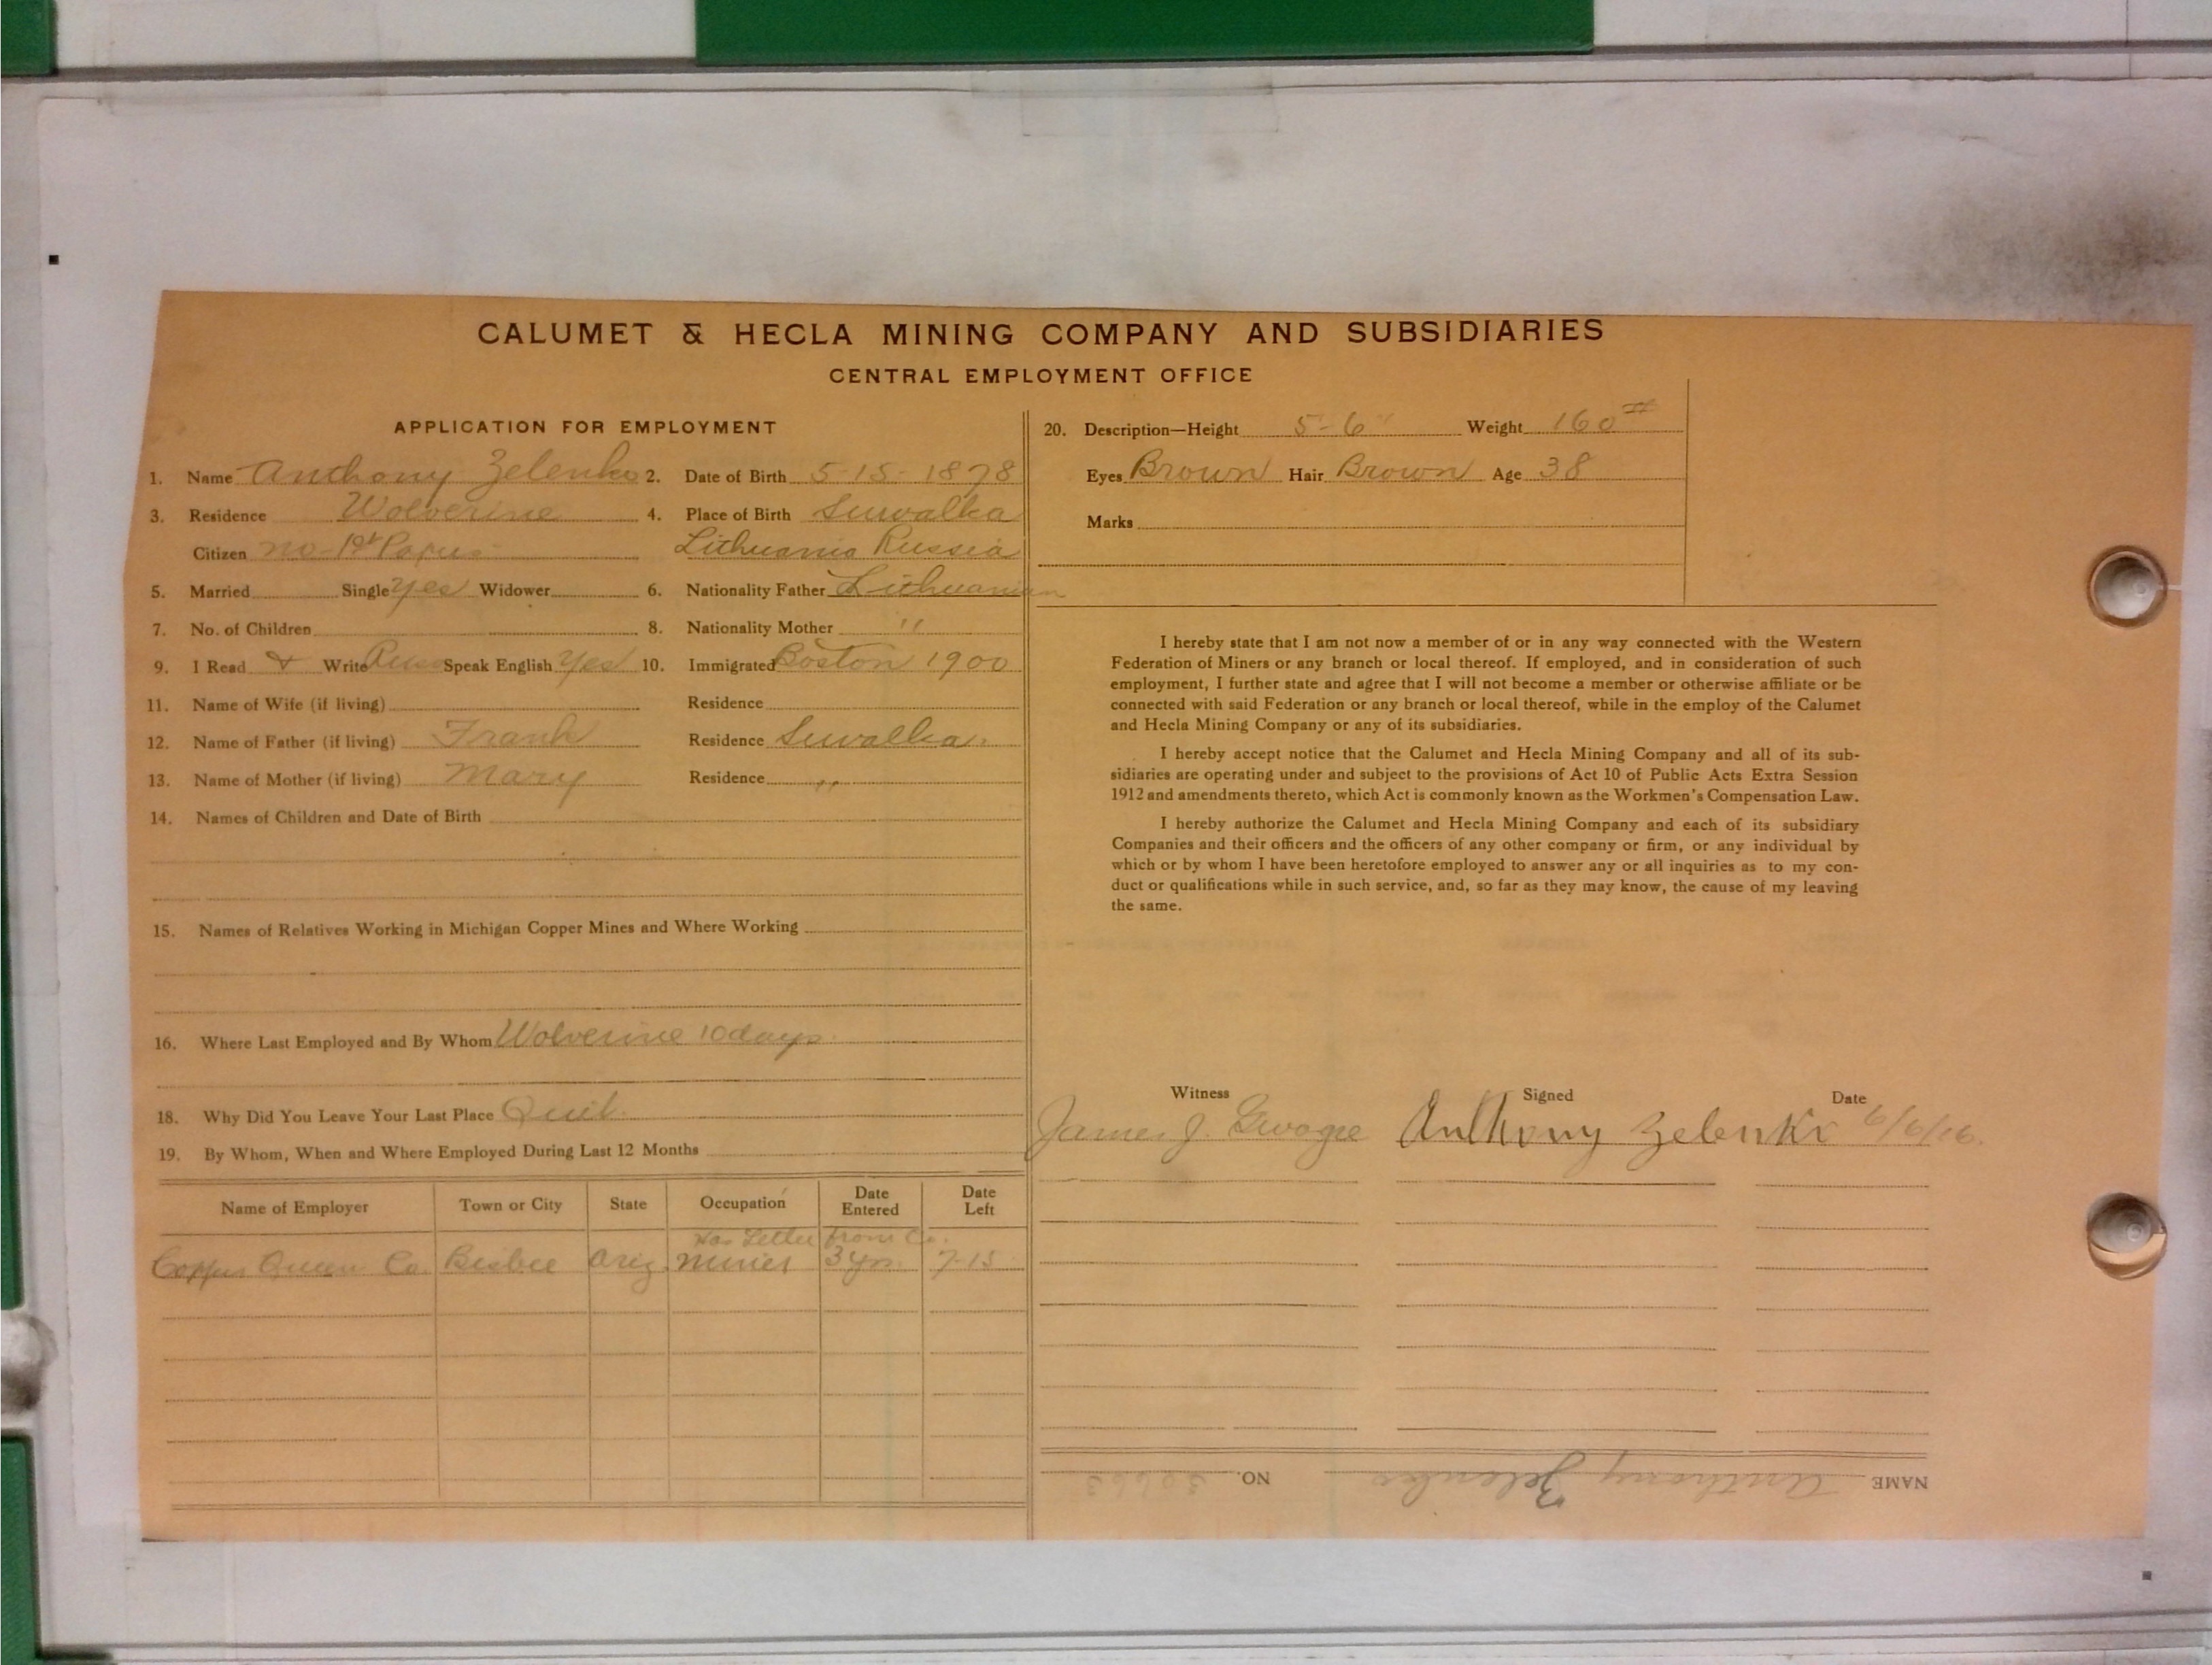 CALUMET & HECLA MINING COMPANY AND SUBSIDIARIES
CENTRAL EMPLOYMENT OFFICE
APPLICATION FOR EMPLOYMENT
1. Name Anthony Zelenko 2. Date of Birth 5-15-1878
3. Residence Wolverine 4. Place of Birth Suwalka
Citizen no-1st Papers Lithuania Russia
5. Married Single Yes Widower 6. Nationality Father Lithuanian
7. No. of Children 8. Nationality Mother "
9. I Read & Write Russ Speak English Yes 10. Immigrated Boston 1900
11. Name of Wife (if living) Residence
12. Name of Father (if living) Frank Residence Suwalka.
13. Name of Mother (if living) Mary Residence "
14. Names of Children and Date of Birth
15. Names of Relatives Working in Michigan Copper Mines and Where Working
16. Where Last Employed and By Whom Wolverine 10 days.
18. Why Did You Leave Your Last Place Quit.
19. By Whom, When and Where Employed During Last 12 Months
Name of Employer Town or City State Occupation Date Entered Date Left
Has Letter from Co.
Copper Queen Co. Bisbee Ariz. Miner 3 yrs. 7-15
20. Description—Height 5-6" Weight 160#
Eyes Brown Hair Brown Age 38
Marks
I hereby state that I am not now a member of or in any way connected with the Western
Federation of Miners or any branch or local thereof. If employed, and in consideration of such
employment, I further state and agree that I will not become a member or otherwise affiliate or be
connected with said Federation or any branch or local thereof, while in the employ of the Calumet
and Hecla Mining Company or any of its subsidiaries.
I hereby accept notice that the Calumet and Hecla Mining Company and all of its sub-
sidiaries are operating under and subject to the provisions of Act 10 of Public Acts Extra Session
1912 and amendments thereto, which Act is commonly known as the Workmen's Compensation Law.
I hereby authorize the Calumet and Hecla Mining Company and each of its subsidiary
Companies and their officers and the officers of any other company or firm, or any individual by
which or by whom I have been heretofore employed to answer any or all inquiries as to my con-
duct or qualifications while in such service, and, so far as they may know, the cause of my leaving
the same.
Witness Signed Date
James J. Anthony Zelenko 6/6/16.
NAME Anthony Zelenko NO.